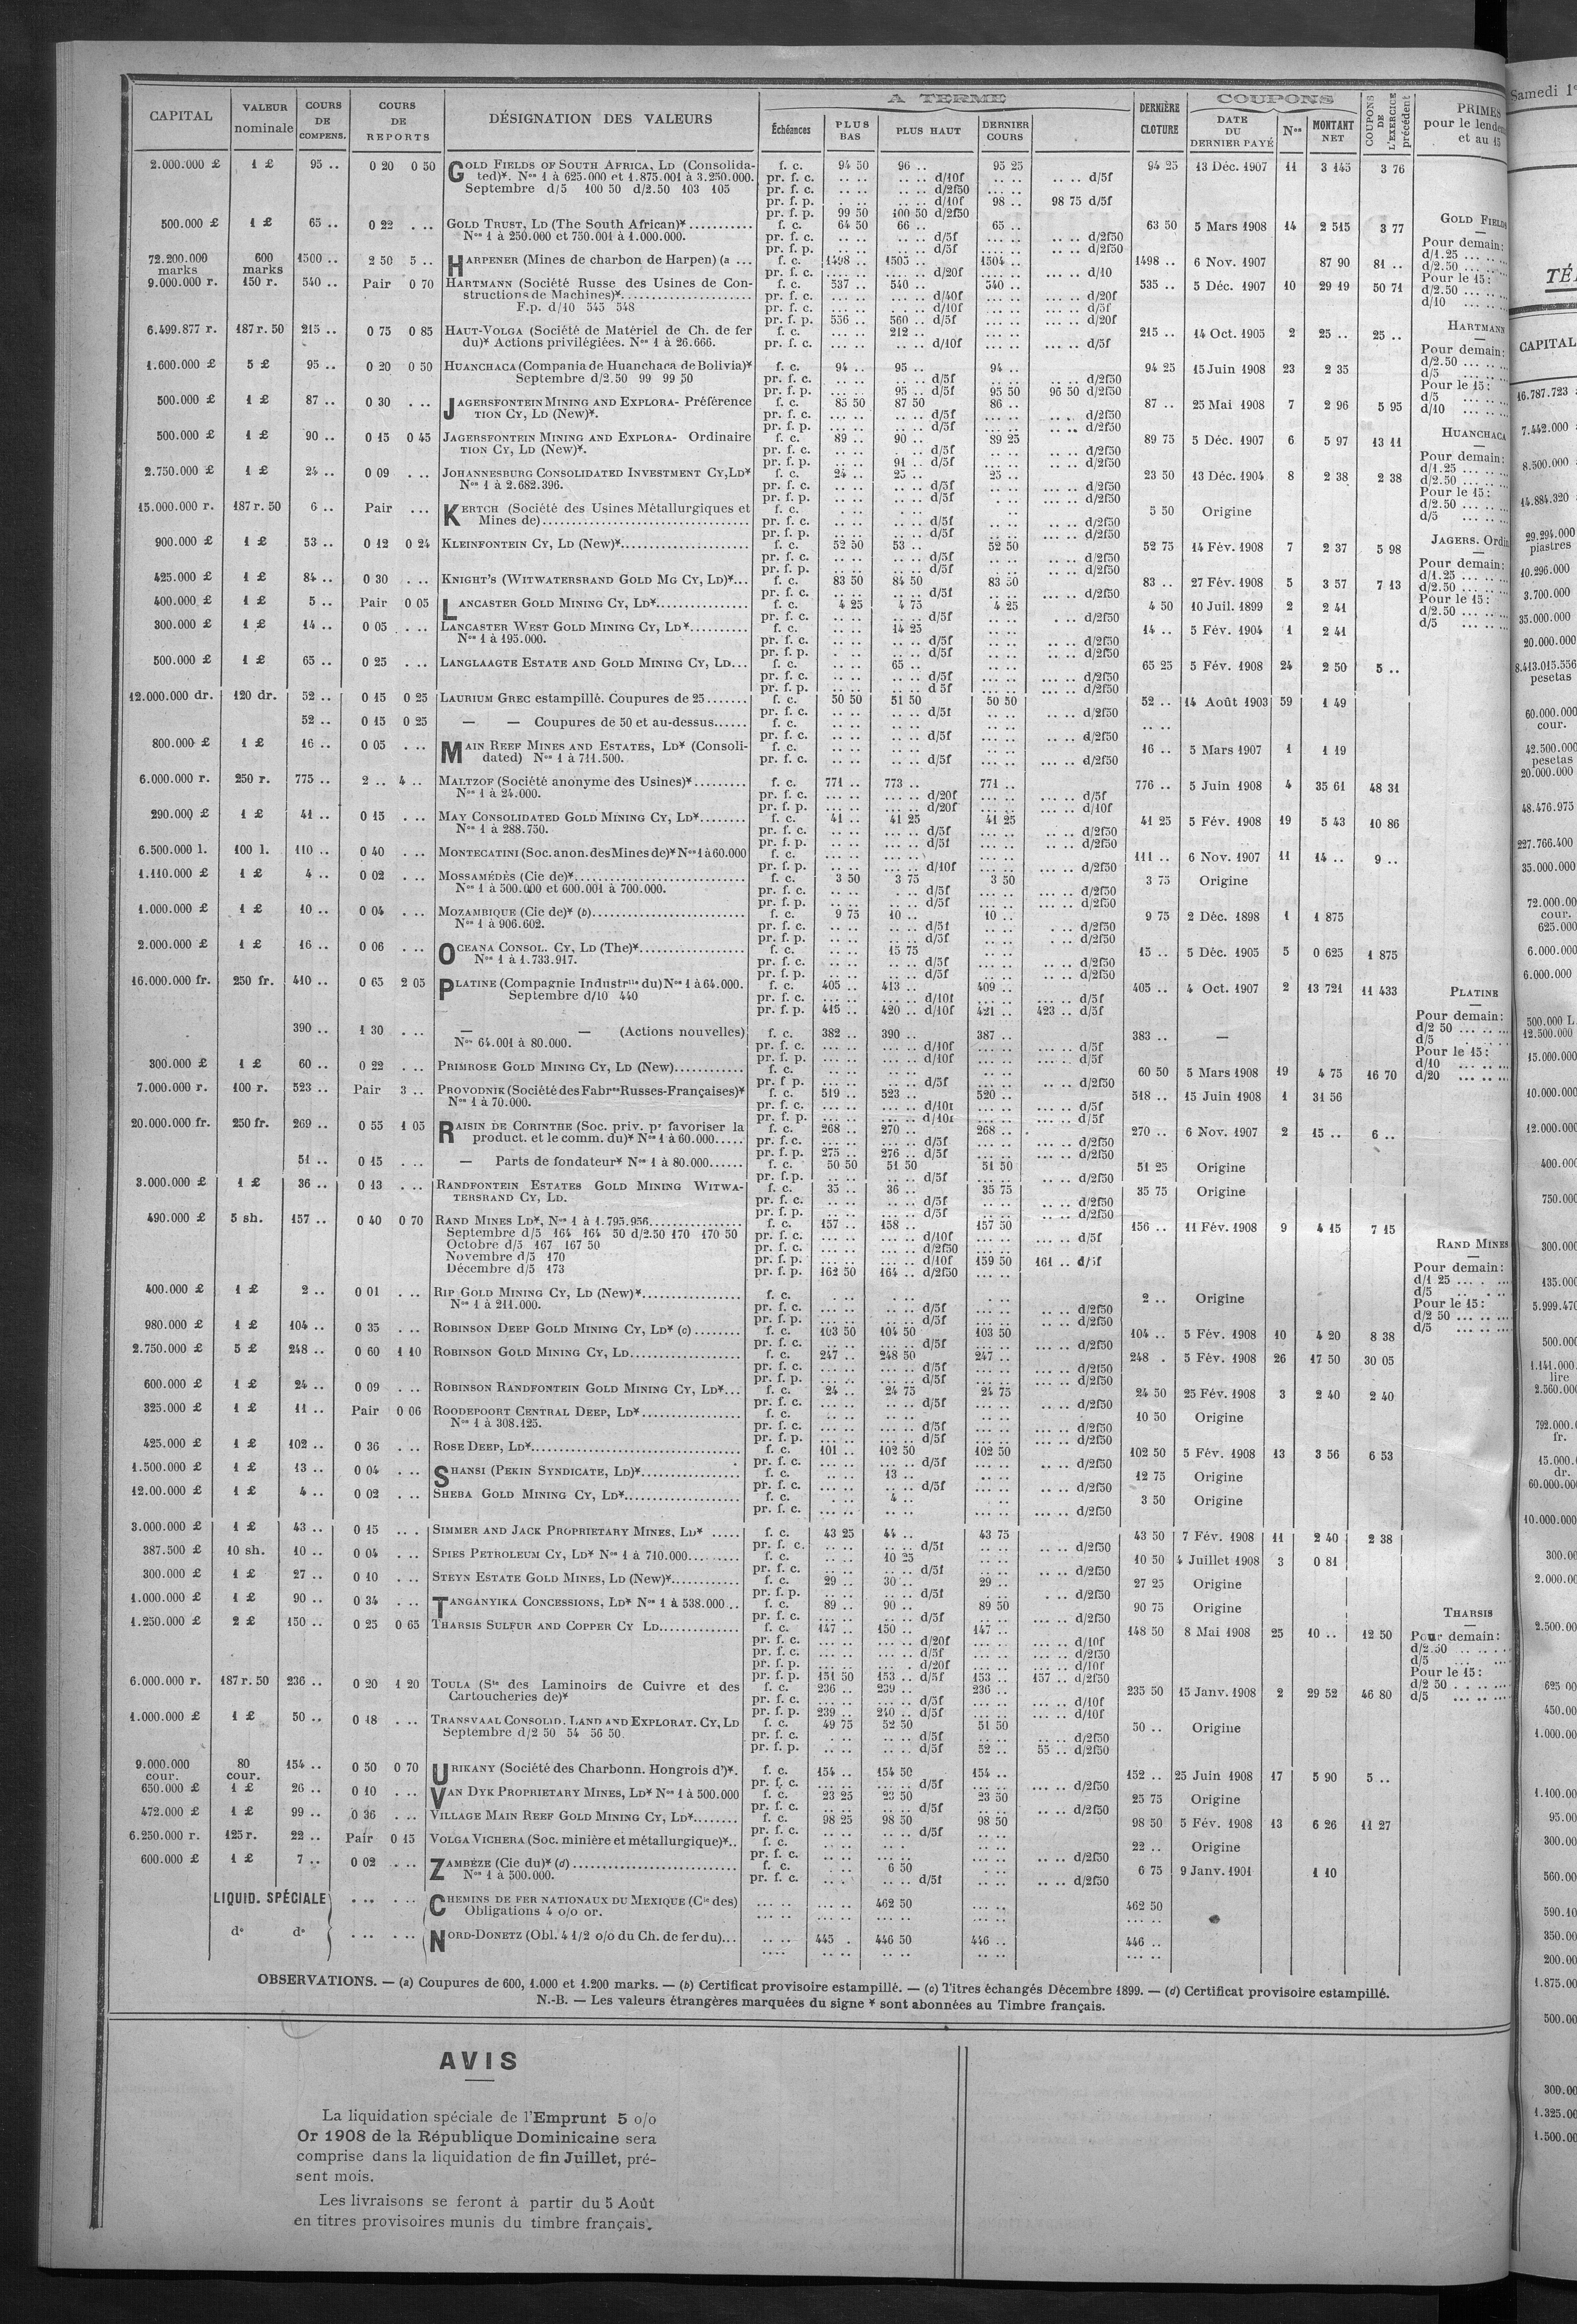 CAPITAL | VALEUR nominale | COURS DE COMPENS. | COURS DE REPORTS | DÉSIGNATION DES VALEURS | A TERME | Échéances | PLUS BAS | PLUS HAUT | DERNIER COURS | DERNIÈRE CLOTURE | COUPONS | DATE DU DERNIER PAYÉ | Nos | MONTANT NET | COUPONS DE L'EXERCICE précédent | PRIMES pour le
2.000.000 £ 1 £ 95 .. 0 20 0 50 GOLD FIELDS OF SOUTH AFRICA, LD (Consolida- f. c. 94 50 96 .. 95 25 94 25 13 Déc. 1907 11 3 145 3 76
ted)*. Nos 1 à 625.000 et 1.875.001 à 3.250.000. pr. f. c. .. .. .. .. d/10f .. .. .. .. d/5f
Septembre d/5 100 50 d/2.50 103 105 pr. f. c. .. .. .. .. d/2f50 .. ..
pr. f. p. .. .. d/10f 98 .. 98 75 d/5f
pr. f. p. 99 50 100 50 d/2f50
500.000 £ 1 £ 65 .. 0 22 . .. GOLD TRUST, LD (The South African)* f. c. 64 50 66 .. 65 .. 63 50 5 Mars 1908 14 2 515 3 77
Nos 1 à 250.000 et 750.001 à 1.000.000. pr. f. c. .. .. .. .. d/5f .. .. .. .. d/2f50
pr. f. p. .. .. .. .. d/5f .. .. .. .. d/2f50
72.200.000 marks 600 marks 1500 .. 2 50 5 .. HARPENER (Mines de charbon de Harpen) (a ... f. c. 1498 .. 1505 .. 1504 .. 1498 .. 6 Nov. 1907 87 90 81 ..
pr. f. c. .... .. .. .. d/20f .... .. ... .. d/10
9.000.000 r. 150 r. 540 .. Pair 0 70 HARTMANN (Société Russe des Usines de Con- f. c. 537 .. 540 .. 540 .. 535 .. 5 Déc. 1907 10 29 19 50 71
structions de Machines)* pr. f. c. ... .. ... .. d/40f ... .. ... .. d/20f
F.p. d/10 545 548 pr. f. c. ... .. d/10f ... .. ... .. d/5f
pr. f. p. 556 .. 560 .. d/5f ... .. ... .. d/20f
6.499.877 r. 187 r. 50 215 .. 0 75 0 85 HAUT-VOLGA (Société de Matériel de Ch. de fer f. c. ... .. 212 .. 215 .. 14 Oct. 1905 2 25 .. 25 ..
du)* Actions privilégiées. Nos 1 à 26.666. pr. f. c. ... .. .. .. d/10f ... .. ... .. d/5f
1.600.000 £ 5 £ 95 .. 0 20 0 50 HUANCHACA (Compania de Huanchaca de Bolivia)* f. c. 94 .. 95 .. 94 .. 94 25 15 Juin 1908 23 2 35
Septembre d/2.50 99 99 50 pr. f. c. .. .. .. .. d/5f .. .. .. .. d/2f50
pr. f. p. .. .. 95 .. d/5f 95 50 96 50 d/2f50
500.000 £ 1 £ 87 .. 0 30 . .. JAGERSFONTEIN MINING AND EXPLORA- Préférence f. c. 85 50 87 50 86 .. 87 .. 25 Mai 1908 7 2 96 5 95
TION CY, LD (New)*. pr. f. c. .. .. .. .. d/5f .. .. .. .. d/2f50
pr. f. p. .. .. .. .. d/5f .. .. .. .. d/2f50
500.000 £ 1 £ 90 .. 0 15 0 45 JAGERSFONTEIN MINING AND EXPLORA- Ordinaire f. c. 89 .. 90 .. 89 25 89 75 5 Déc. 1907 6 5 97 13 11
TION CY, LD (New)*. pr. f. c. .. .. .. .. d/5f .. .. .. .. d/2f50
pr. f. p. .. .. 91 .. d/5f .. .. .. .. d/2f50
2.750.000 £ 1 £ 24 .. 0 09 . .. JOHANNESBURG CONSOLIDATED INVESTMENT CY,LD* f. c. 24 .. 25 .. 25 .. 23 50 13 Déc. 1904 8 2 38 2 38
Nos 1 à 2.682.396. pr. f. c. .. .. .. .. d/5f .. .. .. .. d/2f50
pr. f. p. .. .. .. .. d/5f .. .. .. .. d/2f50
15.000.000 r. 187 r. 50 6 .. Pair ... KERTCH (Société des Usines Métallurgiques et f. c. 5 50 Origine
Mines de) pr. f. c. .. .. .. .. d/5f .. .. .. .. d/2f50
pr. f. p. .. .. .. .. d/5f .. .. .. .. d/2f50
900.000 £ 1 £ 53 .. 0 12 0 24 KLEINFONTEIN CY, LD (New)* f. c. 52 50 53 .. 52 50 52 75 14 Fév. 1908 7 2 37 5 98
pr. f. c. .. .. .. .. d/5f .. .. .. .. d/2f50
pr. f. p. .. .. .. .. d/5f .. .. .. .. d/2f50
425.000 £ 1 £ 84 .. 0 30 . .. KNIGHT'S (WITWATERSRAND GOLD MG CY, LD)*... f. c. 83 50 84 50 83 50 83 .. 27 Fév. 1908 5 3 57 7 13
pr. f. c. .. .. .. .. d/5f .. .. .. .. d/2f50
400.000 £ 1 £ 5 .. Pair 0 05 LANCASTER GOLD MINING CY, LD* f. c. 4 25 4 75 4 25 4 50 10 Juil. 1899 2 2 41
pr. f. c. .. .. .. .. d/5f .. .. . .. d/2f50
300.000 £ 1 £ 14 .. 0 05 . .. LANCASTER WEST GOLD MINING CY, LD* f. c. .. .. 14 25 14 .. 5 Fév. 1904 1 2 41
Nos 1 à 195.000. pr. f. c. .. .. .. .. d/5f .. .. .. .. d/2f50
pr. f. p. .. .. .. .. d/5f .. .. .. .. d/2f50
500.000 £ 1 £ 65 .. 0 25 . .. LANGLAAGTE ESTATE AND GOLD MINING CY, LD... f. c. .. .. 65 .. 65 25 5 Fév. 1908 24 2 50 5 ..
pr. f. c. .. .. .. .. d/5f .. .. .. .. d/2f50
pr. f. p. .. .. .. .. d 5f .. .. .. .. d/2f50
12.000.000 dr. 120 dr. 52 .. 0 15 0 25 LAURIUM GREC estampillé. Coupures de 25 f. c. 50 50 51 50 50 50 52 .. 14 Août 1903 59 1 49
pr. f. c. .. .. .. .. d/5f .. .. .. .. d/2f50
52 .. 0 15 0 25 — — Coupures de 50 et au-dessus f. c. .. .. .. ..
pr. f. c. .. .. .. .. d/5f .. .. .. .. d/2f50
800.000 £ 1 £ 16 .. 0 05 . .. MAIN REEF MINES AND ESTATES, LD* (Consoli- f. c. .. .. .. .. 16 .. 5 Mars 1907 1 1 19
dated) Nos 1 à 711.500. pr. f. c. .. .. .. .. d/5f .. .. .. .. d/2f50
6.000.000 r. 250 r. 775 .. 2 .. 4 .. MALTZOF (Société anonyme des Usines)* f. c. 771 .. 773 .. 771 .. 776 .. 5 Juin 1908 4 35 61 48 31
Nos 1 à 24.000. pr. f. c. ... .. ... .. d/20f ... .. ... .. d/5f
pr. f. p. ... .. ... .. d/20f ... .. ... .. d/10f
290.000 £ 1 £ 41 .. 0 15 . .. MAY CONSOLIDATED GOLD MINING CY, LD* f. c. 41 .. 41 25 41 25 41 25 5 Fév. 1908 19 5 43 10 86
Nos 1 à 288.750. pr. f. c. .. .. .. .. d/5f .. .. .. .. d/2f50
pr. f. p. .. .. .. .. d/5f .. .. .. .. d/2f50
6.500.000 l. 100 l. 110 .. 0 40 . .. MONTECATINI (Soc. anon. des Mines de)* Nos 1 à 60.000 f. c. ... .. ... .. 111 .. 6 Nov. 1907 11 14 .. 9 ..
pr. f. p. ... .. ... .. d/10f ... .. ... .. d/2f50
1.110.000 £ 1 £ 4 .. 0 02 . .. MOSSAMÉDÈS (Cie de)* f. c. 3 50 3 75 3 50 3 75 Origine
Nos 1 à 500.000 et 600.001 à 700.000. pr. f. c. .. .. . .. d/5f .. .. . .. d/2f50
pr. f. p. .. .. .. .. d/5f .. .. . .. d/2f50
1.000.000 £ 1 £ 10 .. 0 04 . .. MOZAMBIQUE (Cie de)* (b) f. c. 9 75 10 .. 10 .. 9 75 2 Déc. 1898 1 1 875
Nos 1 à 906.602. pr. f. c. .. .. .. .. d/5f .. .. . .. d/2f50
pr. f. p. .. .. .. .. d/5f .. .. . .. d/2f50
2.000.000 £ 1 £ 16 .. 0 06 . .. OCEANA CONSOL. CY, LD (The)* f. c. .. .. 15 75 15 .. 5 Déc. 1905 5 0 625 1 875
Nos 1 à 1.733.917. pr. f. c. .. .. .. .. d/5f .. .. .. .. d/2f50
pr. f. p. .. .. .. .. d/5f .. .. .. .. d/2f50
16.000.000 fr. 250 fr. 410 .. 0 65 2 05 PLATINE (Compagnie Industrlle du) Nos 1 à 64.000. f. c. 405 .. 413 .. 409 .. 405 .. 4 Oct. 1907 2 13 721 11 433
Septembre d/10 440 pr. f. c. ... .. ... .. d/10f ... .. ... .. d/5f
pr. f. p. 415 .. 420 .. d/10f 421 .. 423 .. d/5f
390 .. 1 30 . .. — — (Actions nouvelles) f. c. 382 .. 390 .. 387 .. 383 .. —
Nos 64.001 à 80.000. pr. f. c. ... .. ... .. d/10f ... .. ... .. d/5f
pr. f. p. ... .. ... .. d/10f ... .. ... .. d/5f
300.000 £ 1 £ 60 .. 0 22 . .. PRIMROSE GOLD MINING CY, LD (New) f. c. 60 50 5 Mars 1908 19 4 75 16 70
pr. f p. .. .. .. .. d/5f .. .. .. .. d/2f50
7.000.000 r. 100 r. 523 .. Pair 3 .. PROVODNIK (Société des Fabres Russes-Françaises)* f. c. 519 .. 523 .. 520 .. 518 .. 15 Juin 1908 1 31 56
Nos 1 à 70.000. pr. f. c. ... .. ... .. d/10f ... .. ... .. d/5f
pr. f. p. ... .. ... .. d/10f ... .. ... .. d/5f
20.000.000 fr. 250 fr. 269 .. 0 55 1 05 RAISIN DE CORINTHE (Soc. priv. pr favoriser la f. c. 268 .. 270 .. 268 .. 270 .. 6 Nov. 1907 2 15 .. 6 ..
product. et le comm. du)* Nos 1 à 60.000 pr. f. c. ... .. ... .. d/5f ... .. ... .. d/2f50
pr. f. p. 275 .. 276 .. d/5f ... .. ... .. d/2f50
51 .. 0 15 . .. — Parts de fondateur* Nos 1 à 80.000 f. c. 50 50 51 50 51 50 51 25 Origine
pr. f. p. .. .. .. .. d/5f .. .. .. .. d/2f50
3.000.000 £ 1 £ 36 .. 0 13 . .. RANDFONTEIN ESTATES GOLD MINING WITWA- f. c. 35 .. 36 .. 35 75 35 75 Origine
TERSRAND CY, LD. pr. f. c. .. .. .. .. d/5f .. .. .. .. d/2f50
pr. f. p. .. .. .. .. d/5f .. .. .. .. d/2f50
490.000 £ 5 sh. 157 .. 0 40 0 70 RAND MINES LD*, Nos 1 à 1.795.956 f. c. 157 .. 158 .. 157 50 156 .. 11 Fév. 1908 9 4 15 7 15
Septembre d/5 164 164 50 d/2.50 170 170 50 pr. f. c. ... .. ... .. d/10f ... .. ... .. d/5f
Octobre d/5 167 167 50 pr. f. c. ... .. ... .. d/2f50 ... ..
Novembre d/5 170 pr. f. p. ... .. ... .. d/10f 159 50 161 .. d/5f
Décembre d/5 173 pr. f. p. 162 50 164 .. d/2f50 ... ..
400.000 £ 1 £ 2 .. 0 01 . .. RIP GOLD MINING CY, LD (New)* f. c. 2 .. Origine
Nos 1 à 211.000. pr. f. c. ... .. .. .. d/5f ... .. .. .. d/2f50
pr. f. p. ... .. .. .. d/5f ... .. .. .. d/2f50
980.000 £ 1 £ 104 .. 0 35 . .. ROBINSON DEEP GOLD MINING CY, LD* (c) f. c. 103 50 104 50 103 50 104 .. 5 Fév. 1908 10 4 20 8 38
pr. f. c. ... .. ... .. d/5f ... .. ... .. d/2f50
2.750.000 £ 5 £ 248 .. 0 60 1 10 ROBINSON GOLD MINING CY, LD f. c. 247 .. 248 50 247 .. 248 . 5 Fév. 1908 26 17 50 30 05
pr. f. c. ... .. ... .. d/5f ... .. ... .. d/2f50
pr. f. p. ... .. ... .. d/5f ... .. ... .. d/2f50
600.000 £ 1 £ 24 .. 0 09 . .. ROBINSON RANDFONTEIN GOLD MINING CY, LD*... f. c. 24 .. 24 75 24 75 24 50 25 Fév. 1908 3 2 40 2 40
pr. f. c. .. .. .. .. d/5f .. .. .. .. d/2f50
325.000 £ 1 £ 11 .. Pair 0 06 ROODEPOORT CENTRAL DEEP, LD* f. c. 10 50 Origine
Nos 1 à 308.125. pr. f. c. .. .. .. .. d/5f .. .. .. .. d/2f50
pr. f. p. .. .. .. .. d/5f .. .. .. .. d/2f50
425.000 £ 1 £ 102 .. 0 36 . .. ROSE DEEP, LD* f. c. 101 .. 102 50 102 50 102 50 5 Fév. 1908 13 3 56 6 53
pr. f. c. ... .. ... .. d/5f ... .. .. .. d/2f50
1.500.000 £ 1 £ 13 .. 0 04 . .. SHANSI (PEKIN SYNDICATE, LD)* f. c. .. .. 13 .. 12 75 Origine
pr. f. c. .. .. .. .. d/5f .. .. .. .. d/2f50
12.00.000 £ 1 £ 4 .. 0 02 . .. SHEBA GOLD MINING CY, LD* f. c. . .. 4 .. 3 50 Origine
pr. f. c. ... .. .. .. ... .. ... .. d/2f50
3.000.000 £ 1 £ 43 .. 0 15 .. . SIMMER AND JACK PROPRIETARY MINES, LD* f. c. 43 25 44 .. 43 75 43 50 7 Fév. 1908 11 2 40 2 38
pr. f. c. .. .. .. .. d/5f .. .. .. .. d/2f50
387.500 £ 10 sh. 10 .. 0 04 . .. SPIES PETROLEUM CY, LD* Nos 1 à 710.000 f. c. .. .. 10 25 10 50 4 Juillet 1908 3 0 81
pr. f. c. .. .. .. .. d/5f .. .. .. .. d/2f50
300.000 £ 1 £ 27 .. 0 10 . .. STEYN ESTATE GOLD MINES, LD (New)* f. c. 29 .. 30 .. 29 .. 27 25 Origine
pr. f. p. .. .. .. .. d/5f .. .. . .. d/2f50
1.000.000 £ 1 £ 90 .. 0 34 . .. TANGANYIKA CONCESSIONS, LD* Nos 1 à 538.000 .. f. c. 89 .. 90 .. 89 50 90 75 Origine
pr. f. c. .. .. .. .. d/5f .. .. .. .. d/2f50
1.250.000 £ 2 £ 150 .. 0 25 0 65 THARSIS SULFUR AND COPPER CY LD f. c. 147 .. 150 .. 147 .. 148 50 8 Mai 1908 25 10 .. 12 50
pr. f. c. ... .. ... .. d/20f ... .. ... .. d/10f
pr. f. c. ... .. ... .. d/5f ... .. ... .. d/2f50
pr. f. p. ... .. ... . d/20f ... .. ... .. d/10f
pr. f. p. 151 50 153 .. d/5f 153 .. 157 .. d/2f50
6.000.000 r. 187 r. 50 236 .. 0 20 1 20 TOULA (Sté des Laminoirs de Cuivre et des f. c. 236 .. 239 .. 236 .. 235 50 15 Janv. 1908 2 29 52 46 80
Cartoucheries de)* pr. f. c. ... .. ... .. d/5f ... .. ... .. d/10f
pr. f. p. 239 .. 240 .. d/5f ... .. ... .. d/10f
1.000.000 £ 1 £ 50 .. 0 18 . .. TRANSVAAL CONSOLID. LAND AND EXPLORAT. CY, LD f. c. 49 75 52 50 51 50 50 .. Origine
Septembre d/2 50 54 56 50 pr. f. c. . .. .. .. d/5f .. .. .. .. d/2f50
pr. f. p. .. .. .. .. d/5f 52 .. 55 .. d/2f50
9.000.000 cour. 80 cour. 154 .. 0 50 0 70 URIKANY (Société des Charbonn. Hongrois d')*. f. c. 154 .. 154 50 154 .. 152 .. 25 Juin 1908 17 5 90 5 ..
pr. f. c. ... .. ... .. d/5f ... .. ... .. d/2f50
650.000 £ 1 £ 26 .. 0 10 . .. VAN DYK PROPRIETARY MINES, LD* Nos 1 à 500.000 f. c. 23 25 23 50 23 50 25 75 Origine
pr. f. c. .. .. .. .. d/5f .. .. .. .. d/2f50
472.000 £ 1 £ 99 .. 0 36 . .. VILLAGE MAIN REEF GOLD MINING CY, LD* f. c. 98 25 98 50 98 50 98 50 5 Fév. 1908 13 6 26 11 27
pr. f. c. .. .. .. .. d/5f
6.250.000 r. 125 r. 22 .. Pair 0 15 VOLGA VICHERA (Soc. minière et métallurgique)*.. f. c. 22 .. Origine
pr. f. c. .. .. .. .. .. .. .. .. d/2f50
600.000 £ 1 £ 7 .. 0 02 . .. ZAMBÈZE (Cie du)* (d) f. c. . .. 6 50 6 75 9 Janv. 1901 1 10
Nos 1 à 500.000. pr. f. c. .. . .. .. d/5f .. .. .. .. d/2f50
LIQUID. SPÉCIALE CHEMINS DE FER NATIONAUX DU MEXIQUE (Cie des) 462 50 462 50
Obligations 4 o/o or.
do do NORD-DONETZ (Obl. 4 1/2 o/o du Ch. de fer du)... 445 . 446 50 446 .. 446 ..
GOLD FIELDS
Pour demain:
d/1.25
d/2.50
Pour le 15:
d/2.50
d/10
HARTMANN
Pour demain:
d/2.50
d/5
Pour le 15:
d/5
d/10
HUANCHACA
Pour demain:
d/1.25
d/2.50
Pour le 15:
d/2.50
d/5
JAGERS.
Pour demain:
d/1.25
d/2.50
Pour le 15:
d/2.50
d/5
PLATINE
Pour demain:
d/2 50
d/5
Pour le 15:
d/10
d/20
RAND MINES
Pour demain:
d/1 25
d/5
Pour le 15:
d/2 50
d/5
THARSIS
Pour demain:
d/2.50
d/5
Pour le 15:
d/2 50
d/5
OBSERVATIONS. — (a) Coupures de 600, 1.000 et 1.200 marks. — (b) Certificat provisoire estampillé. — (c) Titres échangés Décembre 1899. — (d) Certificat provisoire estampillé.
N.-B. — Les valeurs étrangères marquées du signe * sont abonnées au Timbre français.
AVIS
La liquidation spéciale de l'Emprunt 5 o/o
Or 1908 de la République Dominicaine sera
comprise dans la liquidation de fin Juillet, pré-
sent mois.
Les livraisons se feront à partir du 5 Août
en titres provisoires munis du timbre français.
Samedi
CAPITAL
16.787.723
7.442.000
8.500.000
14.884.320
29.294.000
piastres
10.296.000
3.700.000
35.000.000
20.000.000
8.413.015.556
pesetas
60.000.000
cour.
42.500.000
pesetas
20.000.000
48.476.975
227.766.400
35.000.000